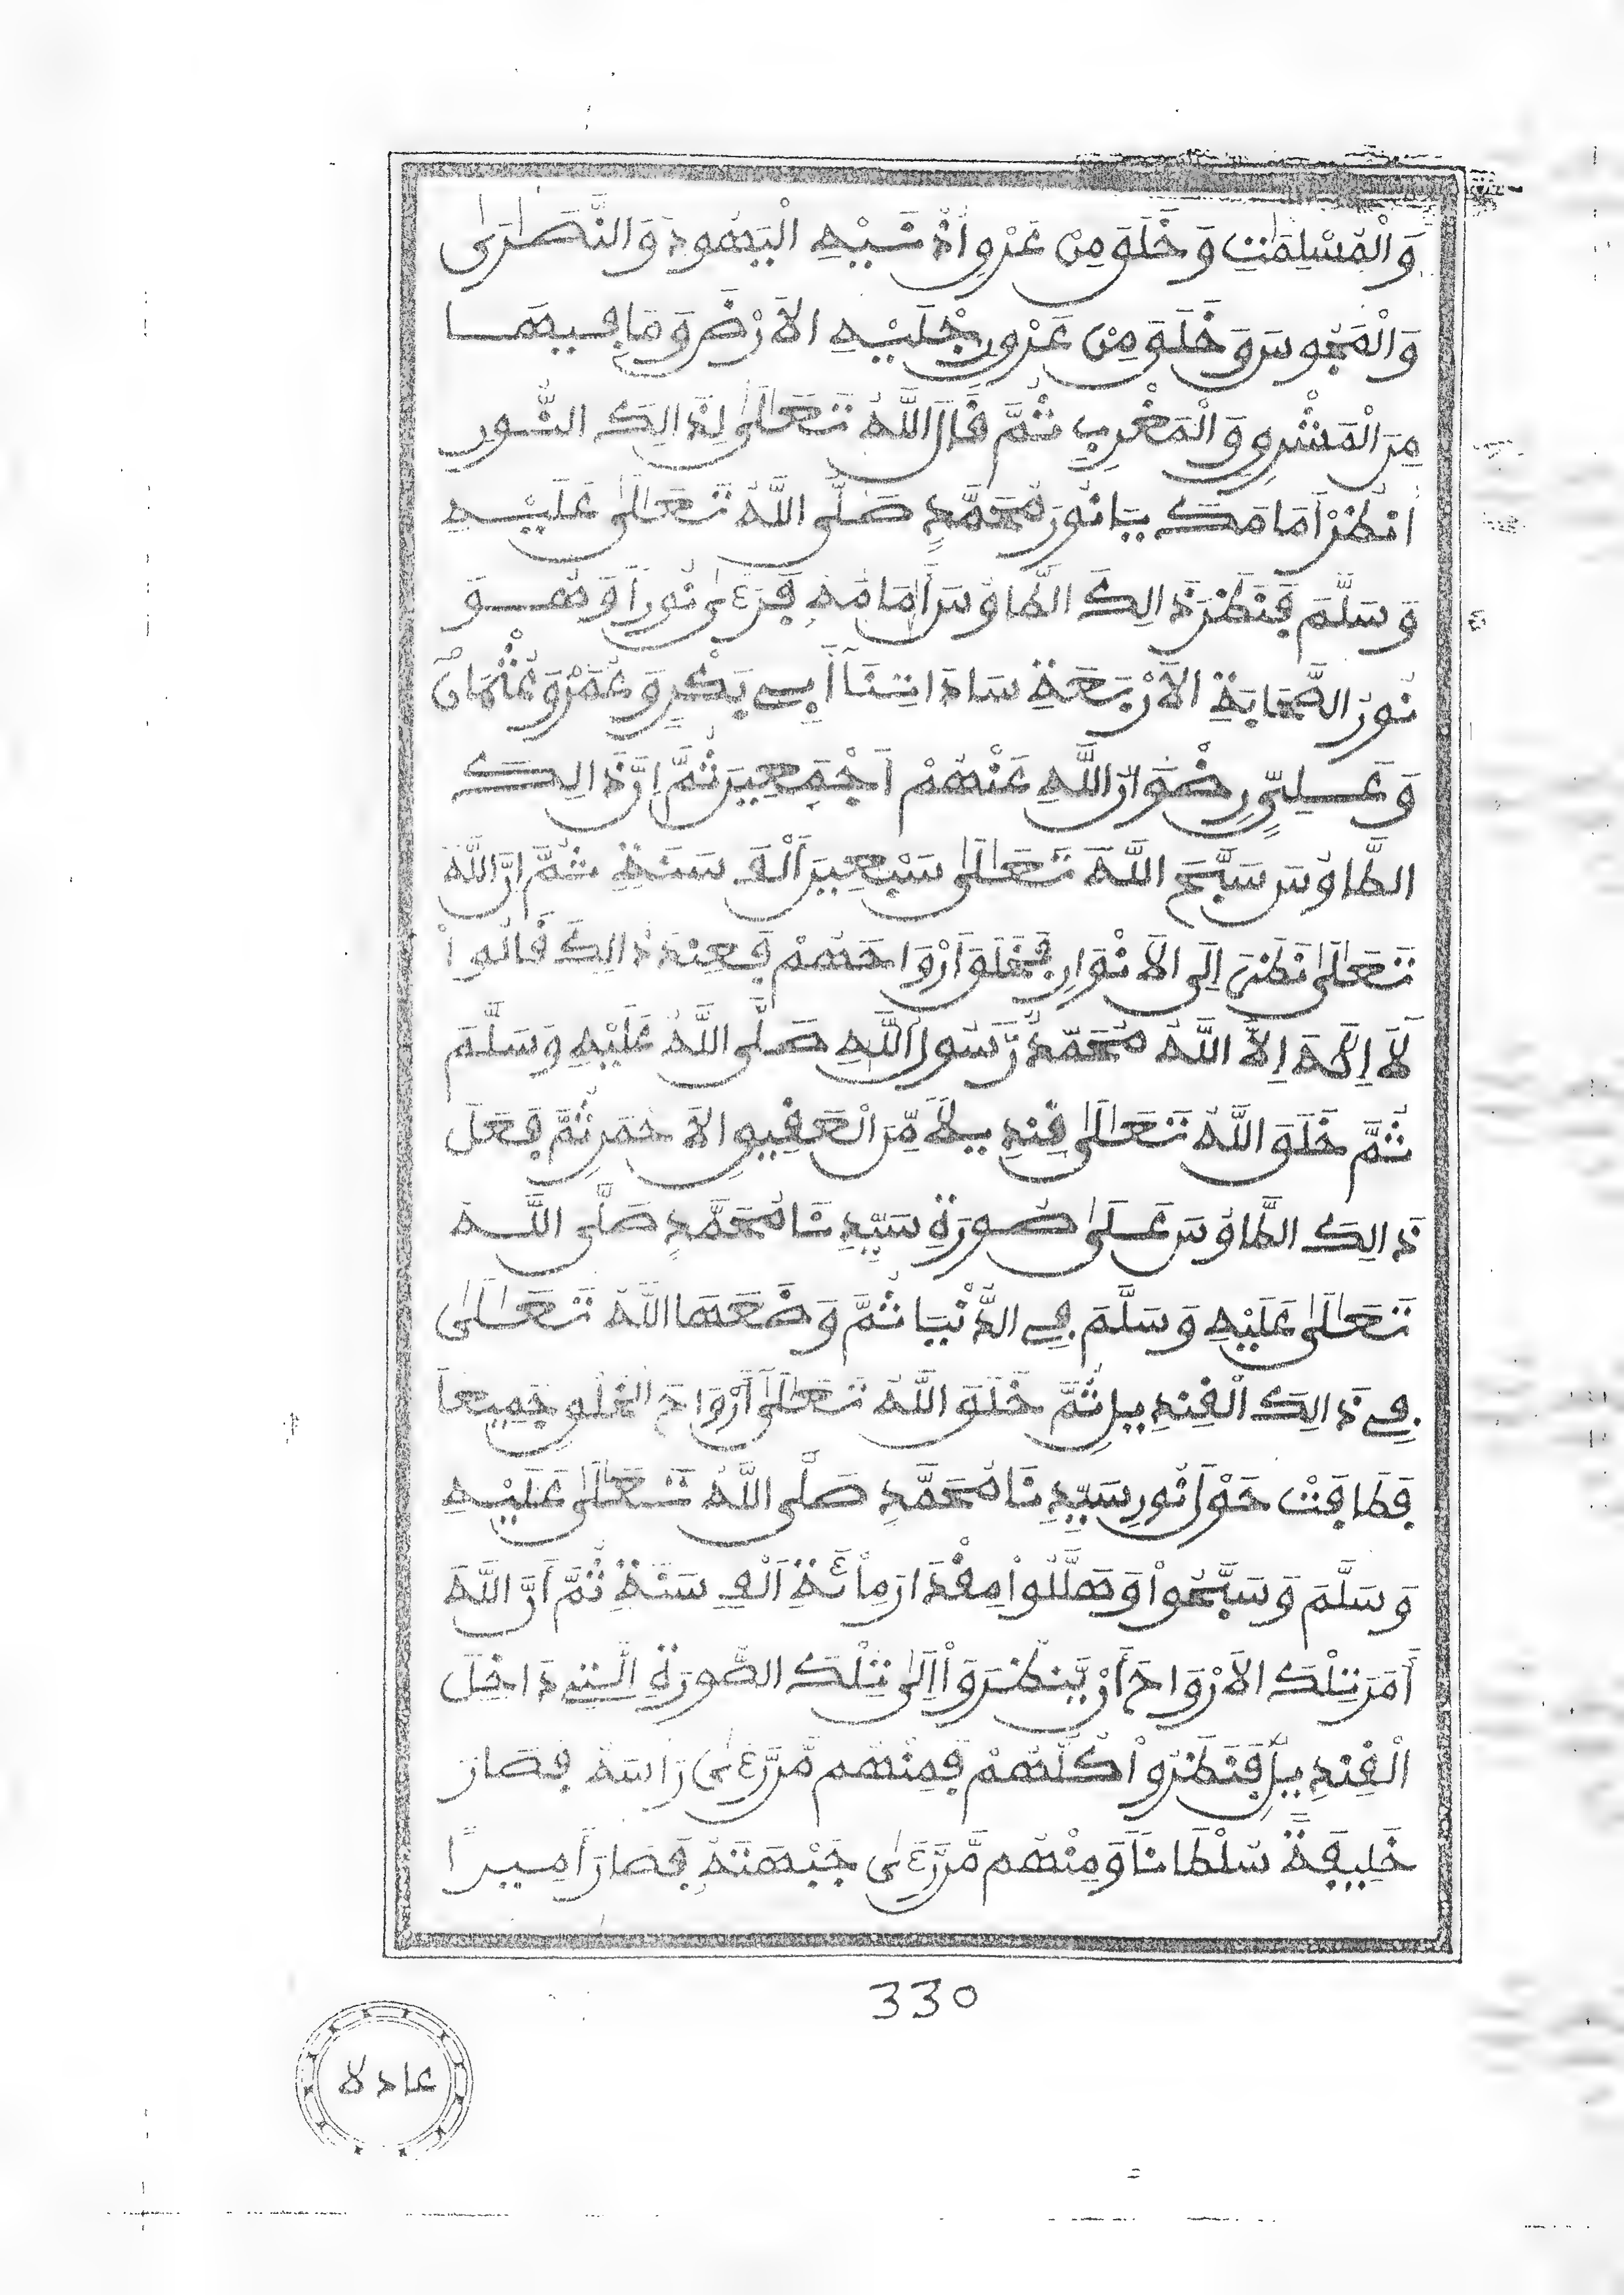 وَالْمُسْلِمَٰتِ وَخَلَقَ مِنْ عَرَقِ أُذُنَيْهِ الْيَهُودَ وَالنَّصَٰرَىٰ
وَالْمَجُوسَ وَخَلَقَ مِنْ عَرَقِ رِجْلَيْهِ الاَرْضَ وَمَا فِيهَا
مِنَ الْمَشْرِقِ وَالْمَغْرِبِ ثُمَّ قَالَ اللَّهُ تَعَٰلَىٰ لِذَالِكَ النُّورِ
اُنْظُرْ اَمَامَكَ يَا نُورَ مُحَمَّدٍ صَلَّى اللَّهُ تَعَٰلَىٰ عَلَيْهِ
وَسَلَّمَ فَنَظَرَ ذَالِكَ الطَّاوُسُ أَمَامَهُ فَرَءَىٰ نُوراً وَهُوَ
نُورُ الصَّحَابَةِ الاَرْبَعَةِ سَادَاتِنَا أَبِي بَكْرٍ وَعُمَرَ وَعُثْمَانَ
وَعَلِيٍّ رِضْوَانُ اللَّهِ عَنْهُمْ اَجْمَعِينَ ثُمَّ إِنَّ ذَالِكَ
الطَّاوُسَ سَبَّحَ اللَّهَ تَعَٰلَىٰ سَبْعِينَ اَلْفَ سَنَةٍ ثُمَّ إِنَّ اللَّهَ
تَعَٰلَىٰ نَظَرَ إِلَى الاَنْوَارِ فَخَلَقَ أَرْوَاحَهُمْ فَعِنْدَ ذَالِكَ قَالُواْ
لَا إِلَٰهَ إِلاَّ اللَّهُ مُحَمَّدٌ رَّسُولُ اللَّهِ صَلَّى اللَّهُ عَلَيْهِ وَسَلَّمَ
ثُمَّ خَلَقَ اللَّهُ تَعَٰلَىٰ قِنْدِيلاً مِّنَ الْعَقِيقِ الاَحْمَرِ ثُمَّ جَعَلَ
ذَالِكَ الطَّاوُسَ عَلَىٰ صُورَةِ سَيِّدِنَا مُحَمَّدٍ صَلَّى اللَّهُ
تَعَٰلَىٰ عَلَيْهِ وَسَلَّمَ فِي الدُّنْيَا ثُمَّ وَضَعَهَا اللَّهُ تَعَٰلَىٰ
فِي ذَالِكَ الْقِنْدِيلِ ثُمَّ خَلَقَ اللَّهُ تَعَٰلَىٰ أَرْوَاحَ الْخَلْقِ جَمِيعاً
فَطَافَتْ حَوْلَ نُورِ سَيِّدِنَا مُحَمَّدٍ صَلَّى اللَّهُ تَعَٰلَىٰ عَلَيْهِ
وَسَلَّمَ وَسَبَّحُواْ وَهَلَّلُواْ مِقْدَارَ مِاْئَةِ اَلْفِ سَنَةٍ ثُمَّ أَنَّ اللَّهَ
أَمَرَ تِلْكَ الاَرْوَاحَ أَنْ يَّنظُرَوْاْ إِلَىٰ تِلْكَ الصُّورَةِ الَّتِي دَاخِلَ
الْقِنْدِيلِ فَنَظَرُواْ كُلُّهُمْ فَمِنْهُم مَّن رَّءَىٰ رَاسَهُ فَصَارَ
خَلِيفَةً سُلْطَاناً وَمِنْهُم مَّن رَّءَىٰ جَبْهَتَهُ فَصَارَ أَمِيراً
330
عادلا